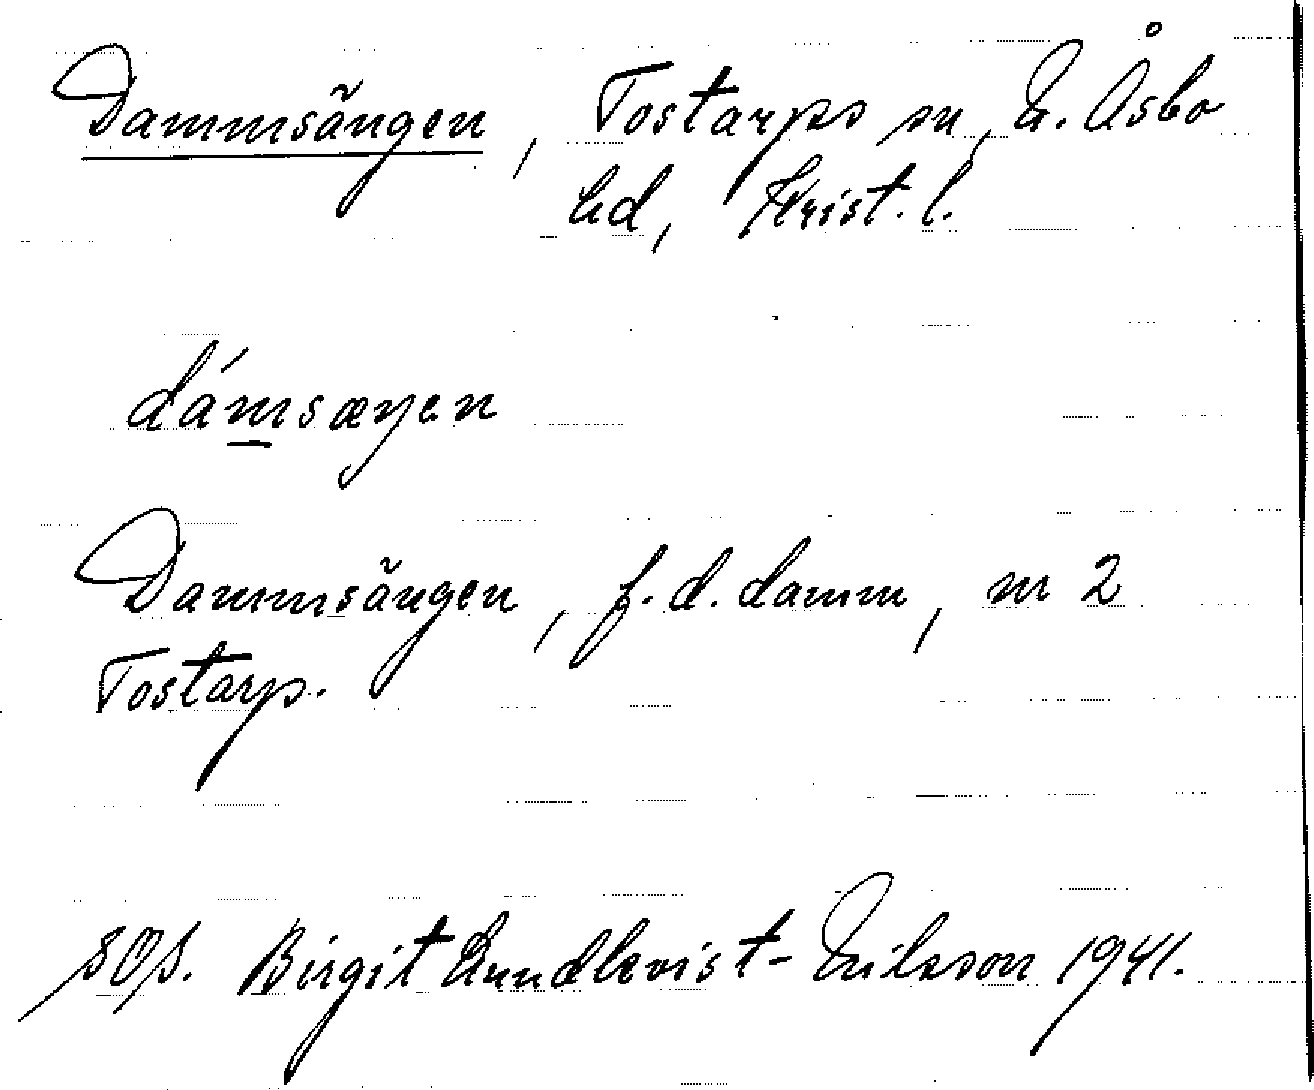 Dammsängen, Tostarps sn, N. Åsbo
hd, Krist. l.
dámsæŋen
Dammsängen, f. d. damm, nr 2
Tostarp.
Birgit Lundkvist-Nilsson 1941.